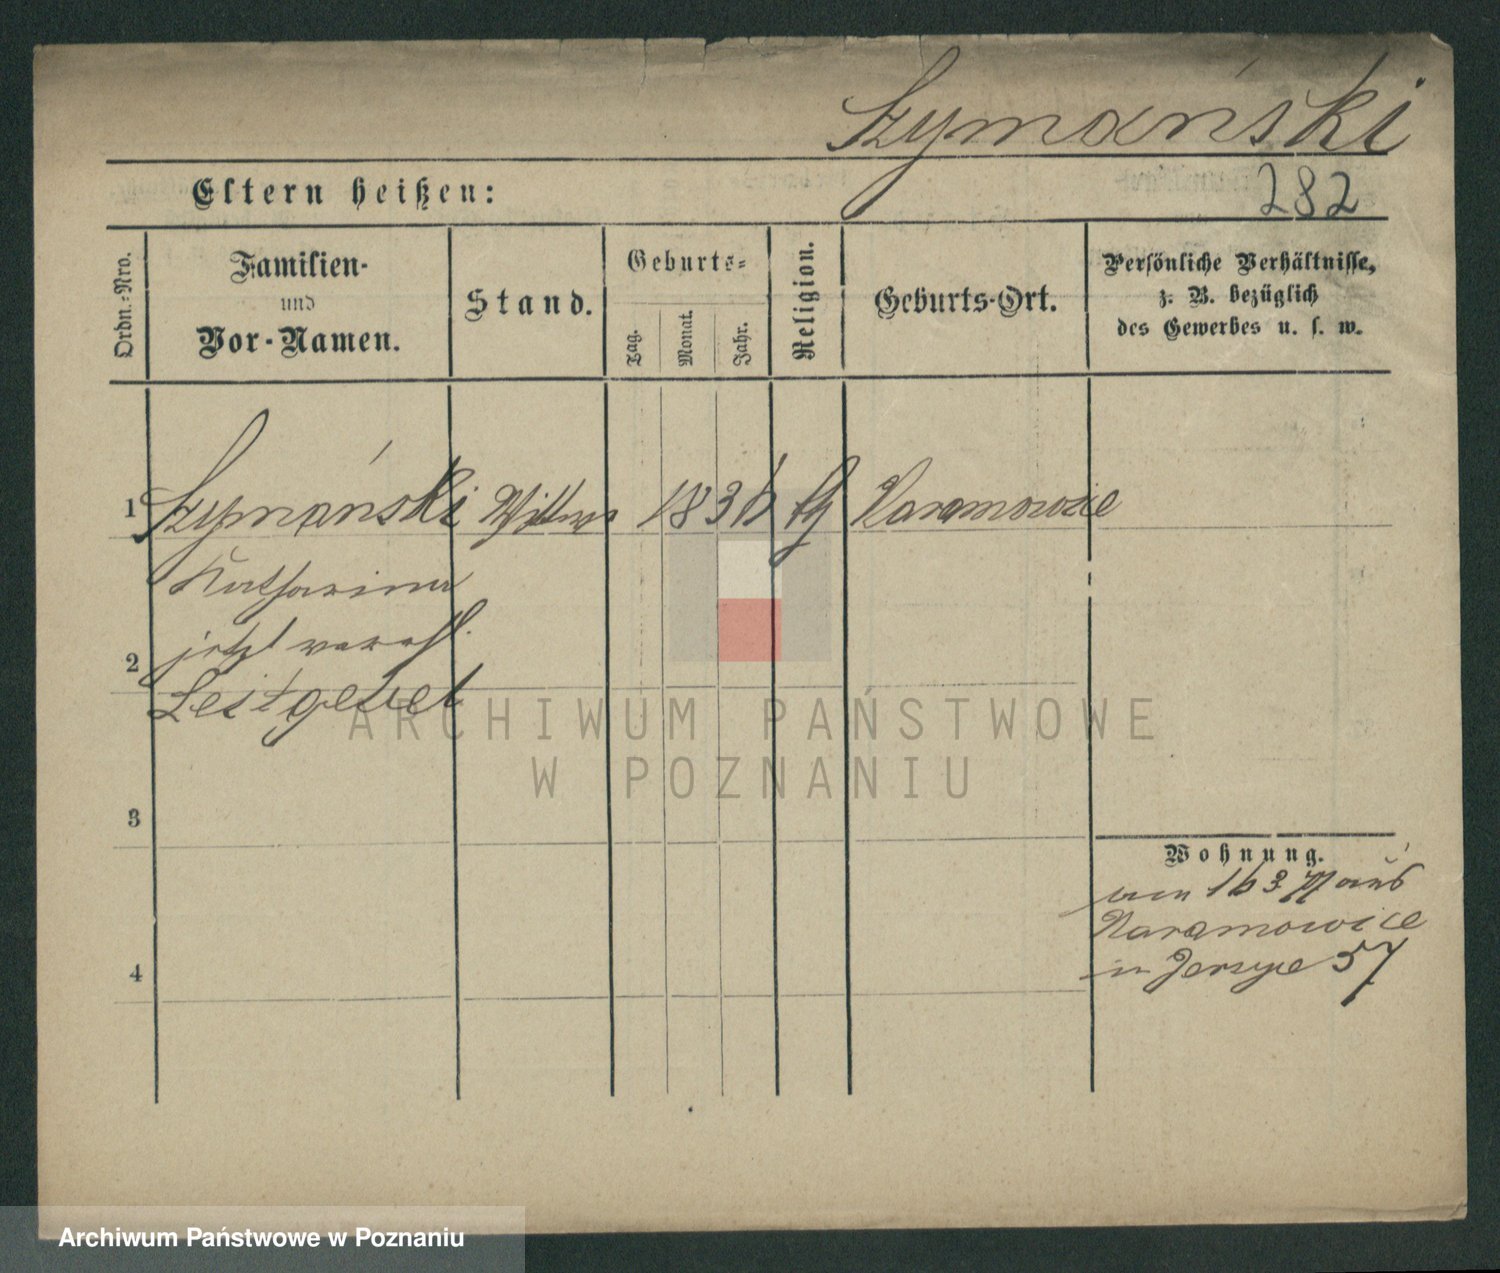 Szymański
Eltern heißen:
282
Ordn.-Nro.
Familien-
und
Vor-Namen.
Stand.
Geburts-
Tag.
Monat.
Jahr.
Religion.
Geburts-Ort.
Persönliche Verhältnisse,
z. B. bezüglich
des Gewerbes u. s. w.
1 Szymański Wittwe 1836 Naramowice
Katharina
jetzt verehl.
2
Leitgeber
3
4
Wohnung.
Naramowice
in Jerzyce 57
ARCHIWUM PAŃSTWOWE
W POZNANIU
Archiwum Państwowe w Poznaniu